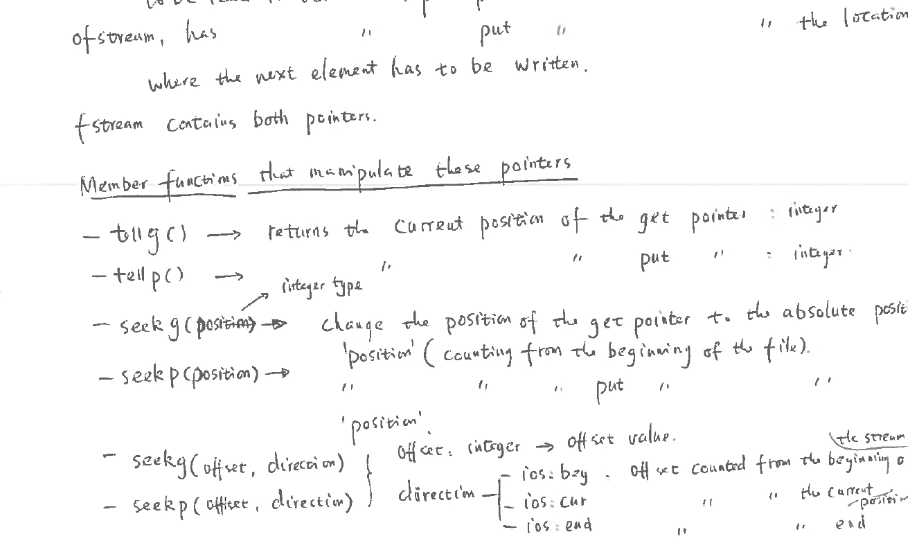 ofstream, has " put " " the location
where the next element has to be written.
fstream contains both pointers.
Member functions that manipulate these pointers
– tellg() → returns the current position of the get pointer : integer
– tellp() → " " put " : integer.
integer type
– seekg(position) → change the position of the get pointer to the absolute posit
'position' (counting from the beginning of the file).
– seekp(position) → " " " put " "
'position'.
– seekg(offset, direction) offset: integer → offset value.
– seekp(offset, direction) direction
the stream
– ios:beg . offset counted from the beginning o
– ios:cur " " the current position
– ios:end " " end